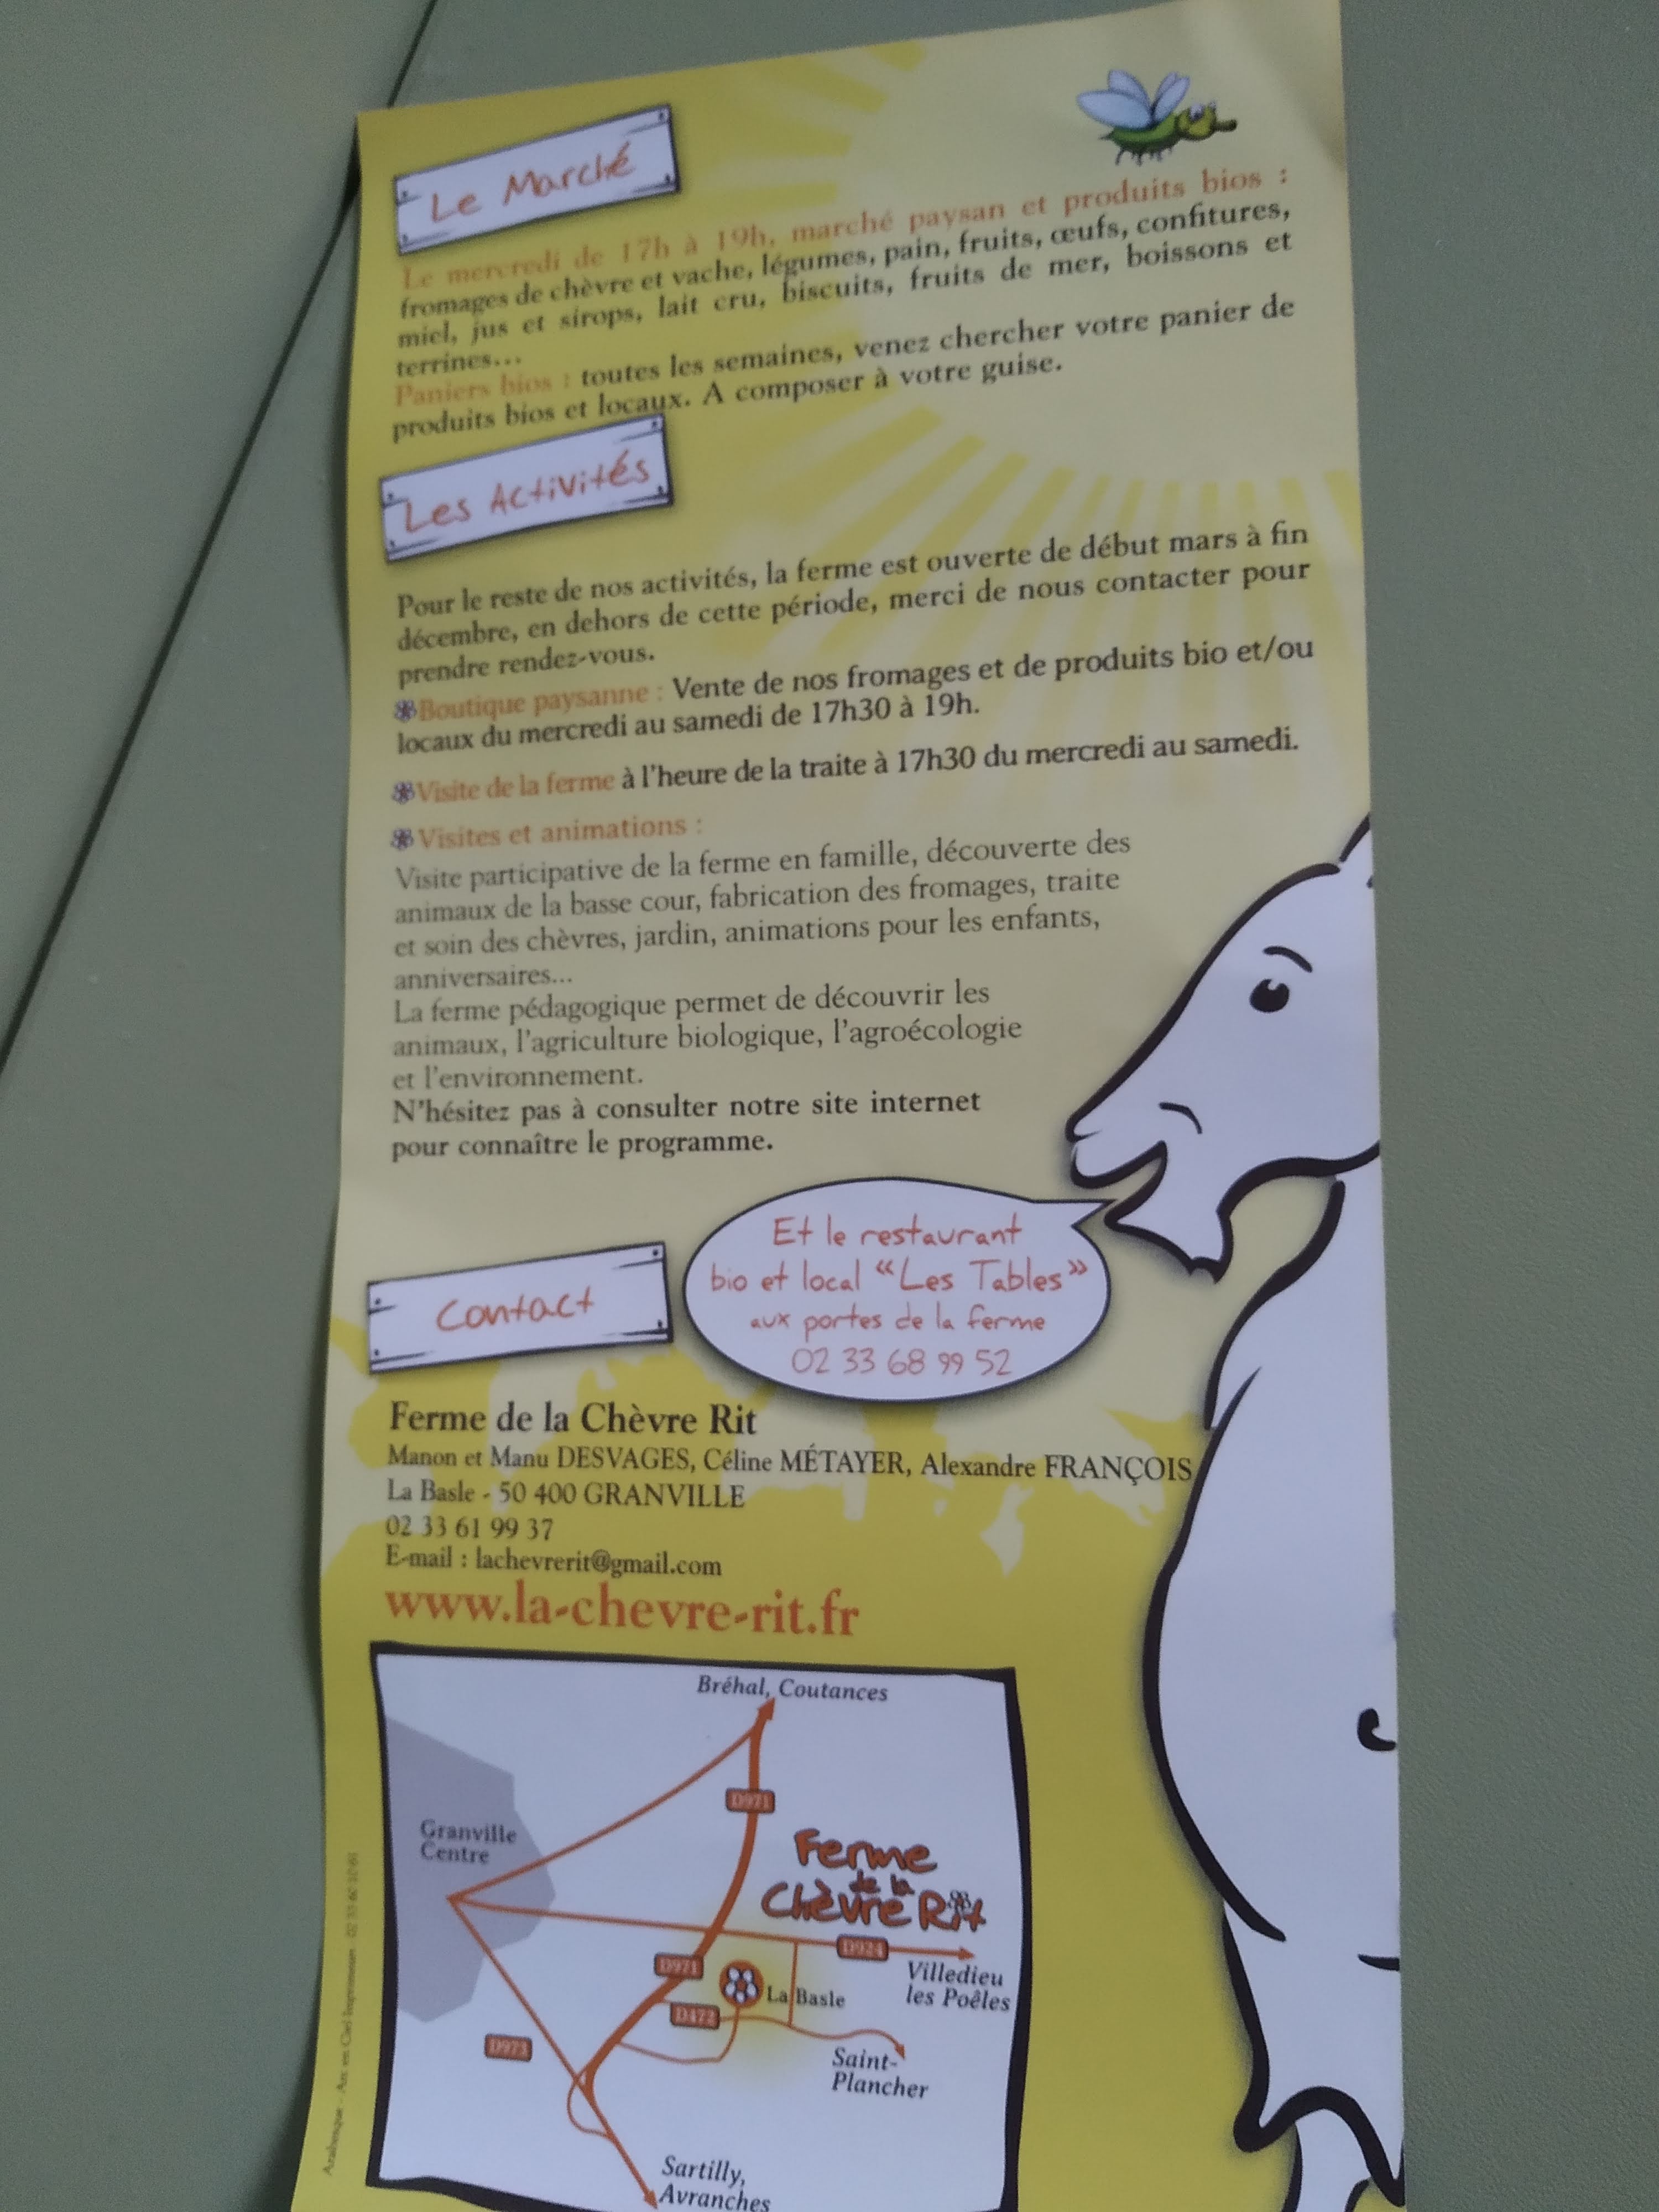 Le Marché
Le mercredi de 17h à 19h, marché paysan et produits bios :
fromages de chèvre et vache, légumes, pain, fruits, œufs, confitures,
miel, jus et sirops, lait cru, biscuits, fruits de mer, boissons et
terrines...
Paniers bios : toutes les semaines, venez chercher votre panier de
produits bios et locaux. A composer à votre guise.
Les Activités
Pour le reste de nos activités, la ferme est ouverte de début mars à fin
décembre, en dehors de cette période, merci de nous contacter pour
prendre rendez-vous.
Boutique paysanne : Vente de nos fromages et de produits bio et/ou
locaux du mercredi au samedi de 17h30 à 19h.
Visite de la ferme à l'heure de la traite à 17h30 du mercredi au samedi.
Visites et animations :
Visite participative de la ferme en famille, découverte des
animaux de la basse cour, fabrication des fromages, traite
et soin des chèvres, jardin, animations pour les enfants,
anniversaires...
La ferme pédagogique permet de découvrir les
animaux, l'agriculture biologique, l'agroécologie
et l'environnement.
N'hésitez pas à consulter notre site internet
pour connaître le programme.
Et le restaurant
bio et local “Les Tables”
aux portes de la ferme
02 33 68 99 52
Contact
Ferme de la Chèvre Rit
Manon et Manu DESVAGES, Céline MÉTAYER, Alexandre FRANÇOIS
La Basle - 50 400 GRANVILLE
02 33 61 99 37
E-mail : lachevrerit@gmail.com
www.la-chevre-rit.fr
Bréhal, Coutances
D971
Granville
Centre
Ferme
de la
Chèvre Rit
D924
D971
Villedieu
les Poêles
La Basle
D472
D973
Saint-
Plancher
Sartilly,
Avranches
Arabesque - Arc en Ciel Imprimeur